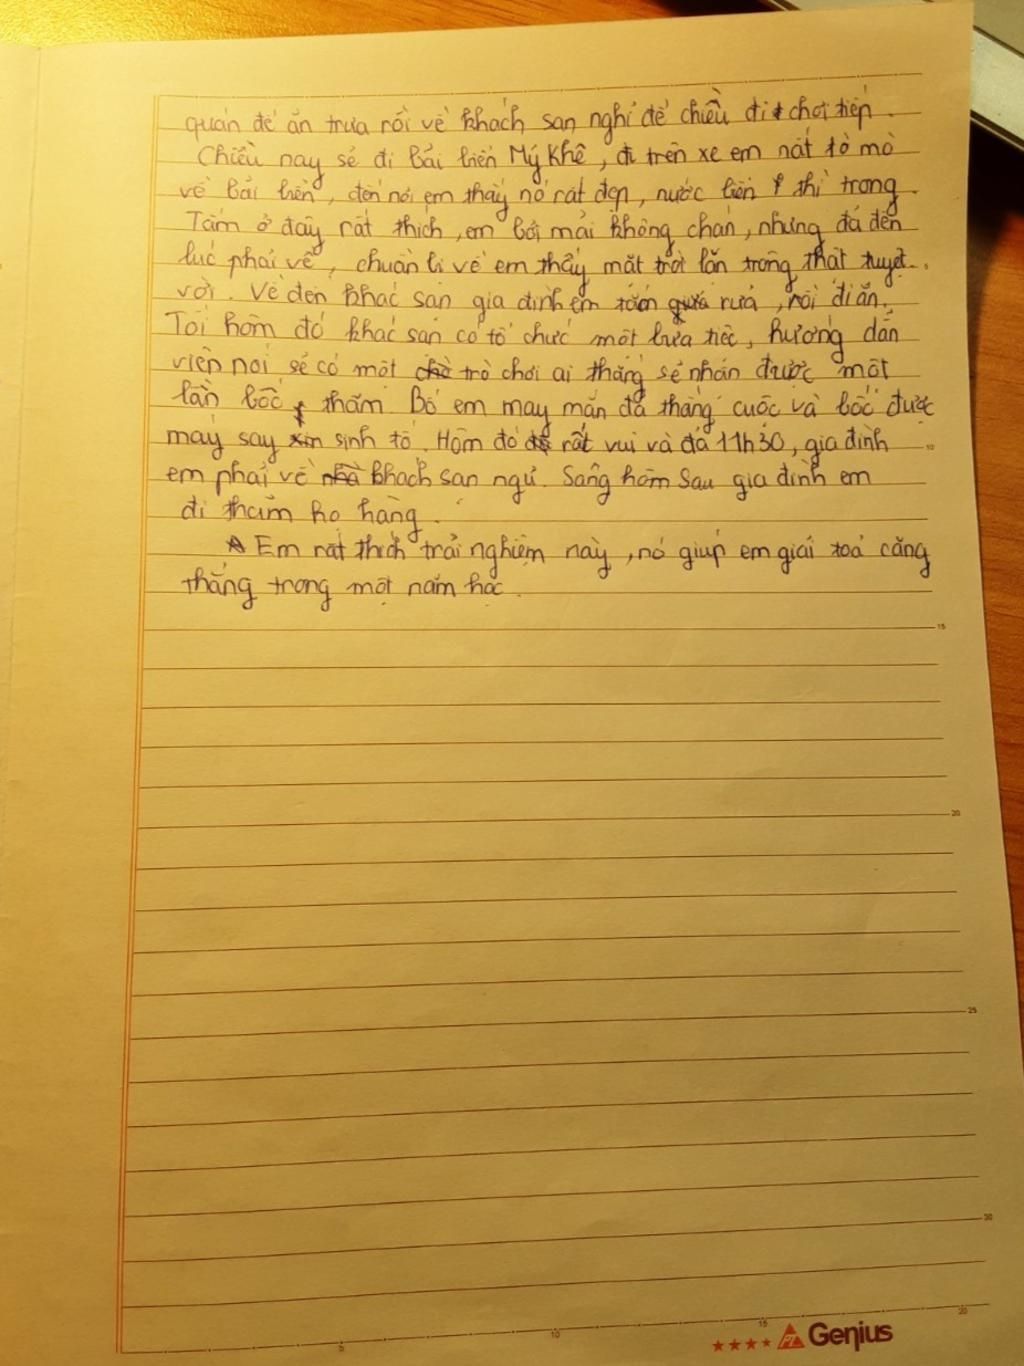 quán để ăn trưa rồi về khách sạn nghỉ để chiều đi chơi tiếp.
Chiều nay sẽ đi bãi biển Mỹ Khê, đi trên xe em rất tò mò
về bãi biển, đến nơi em thấy nó rất đẹp, nước biển thì trong.
Tắm ở đây rất thích, em bơi mãi không chán, nhưng đã đến
lúc phải về, chuẩn bị về em thấy mặt trời lặn trông thật tuyệt
vời. Về đến khác sạn gia đình em rửa, rồi đi ăn.
Tối hôm đó khác sạn có tổ chức một bữa tiệc, hướng dẫn
viên nói sẽ có một trò chơi ai thắng sẽ nhận được một
lần bốc thăm. Bố em may mắn đã thắng cuộc và bốc được
máy say sinh tố. Hôm đó rất vui và đã 11h30, gia đình
em phải về khách sạn ngủ. Sáng hôm sau gia đình em
đi thăm họ hàng.
Em rất thích trải nghiệm này, nó giúp em giải toả căng
thẳng trong một năm học.
10
15
20
25
30
5
10
15
20
★★★★ PT Genius